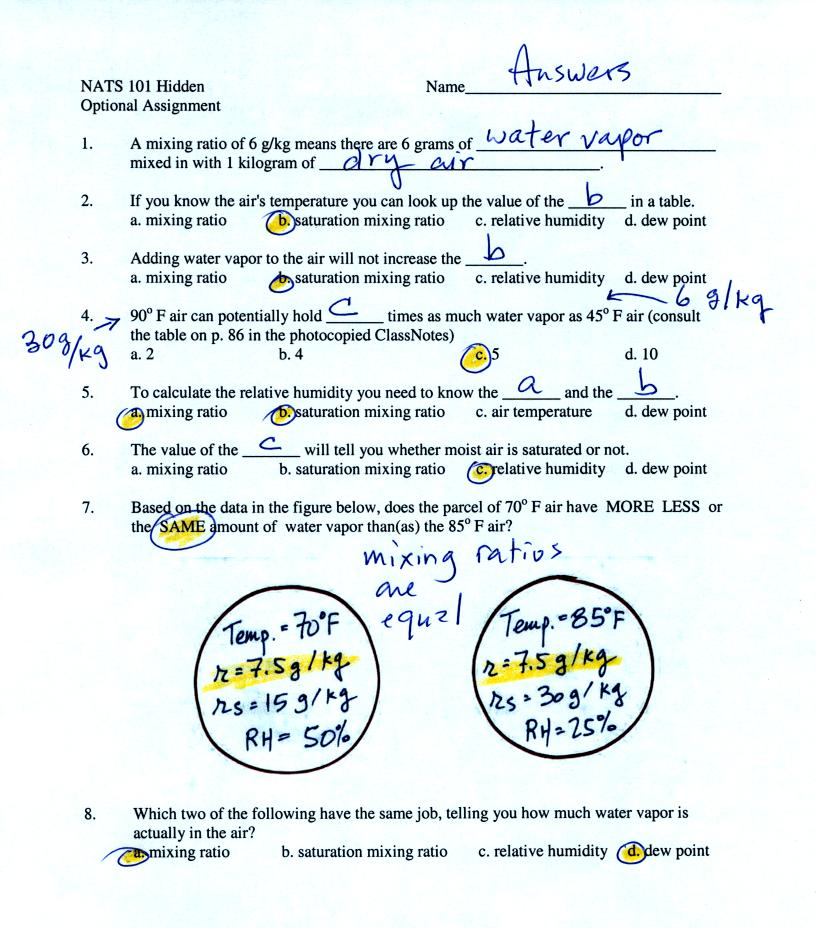 Answers
NATS 101 Hidden Name
Optional Assignment
1. A mixing ratio of 6 g/kg means there are 6 grams of water vapor
mixed in with 1 kilogram of dry air.
2. If you know the air's temperature you can look up the value of the b in a table.
a. mixing ratio b. saturation mixing ratio c. relative humidity d. dew point
3. Adding water vapor to the air will not increase the b.
a. mixing ratio b. saturation mixing ratio c. relative humidity d. dew point
6 g/kg
4. 90° F air can potentially hold c times as much water vapor as 45° F air (consult
30g/kg
the table on p. 86 in the photocopied ClassNotes)
a. 2 b. 4 c. 5 d. 10
5. To calculate the relative humidity you need to know the a and the b.
a. mixing ratio b. saturation mixing ratio c. air temperature d. dew point
6. The value of the c will tell you whether moist air is saturated or not.
a. mixing ratio b. saturation mixing ratio c. relative humidity d. dew point
7. Based on the data in the figure below, does the parcel of 70° F air have MORE LESS or
the SAME amount of water vapor than(as) the 85° F air?
mixing ratios
are
equal
Temp. = 70°F
r = 7.5 g/kg
rs = 15 g/kg
RH = 50%
Temp. = 85°F
r = 7.5 g/kg
rs = 30 g/kg
RH = 25%
8. Which two of the following have the same job, telling you how much water vapor is
actually in the air?
a. mixing ratio b. saturation mixing ratio c. relative humidity d. dew point